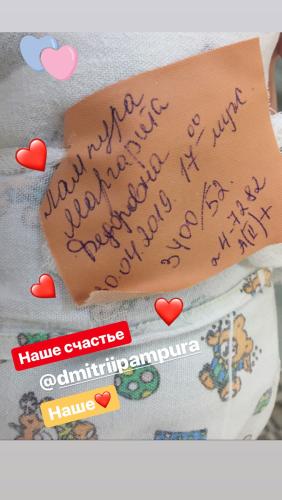 Пампура
Маргарита
Федоровна
30.04.2019. 17 00
3400/52. муж.
α 4-7282
A(II)+
Наше счастье
@dmitriipampura
Наше❤️